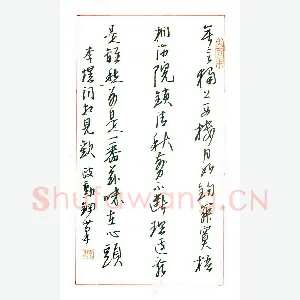 無言獨上西樓月如鉤寂寞梧
桐深院鎖清秋剪不斷理還亂
是離愁別是一番滋味在心頭
李煜詞相見歡
Shufawang.CN